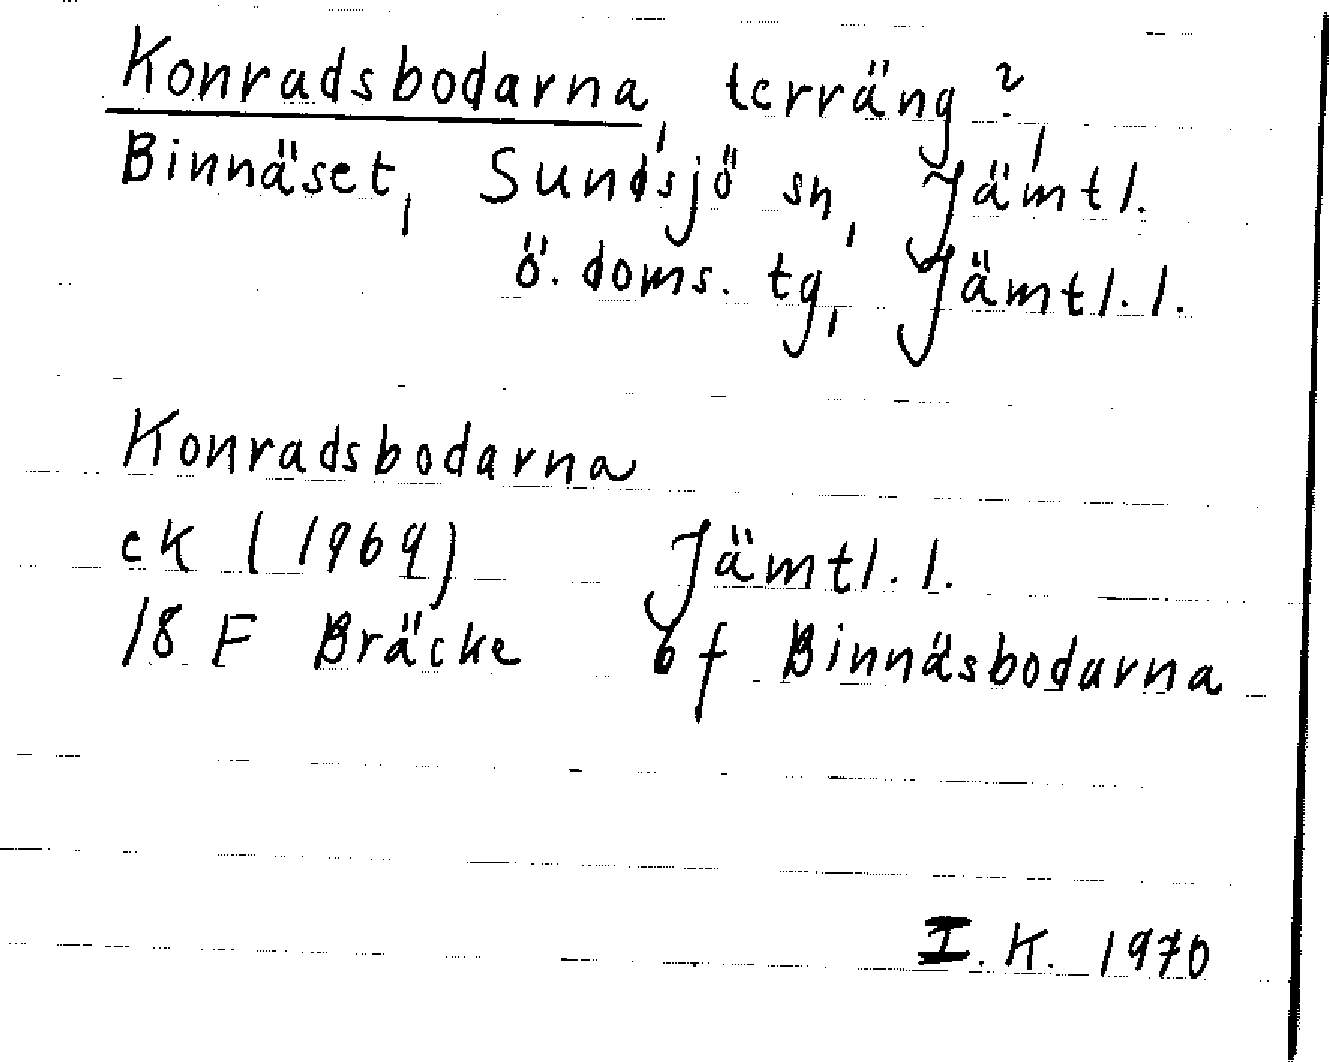 Konradsbodarna, terräng?,
Binnäset, Sundsjö sn, Jämtl.
ö. doms. tg, Jämtl. l.
Konradsbodarna
ek (1969) Jämtl. l.
18 F Bräcke 6f Binnäsbodarna
I. K. 1970